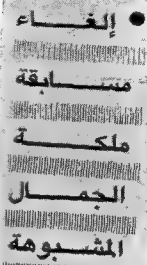 ● إلغاء
مسابقة
ملكة
الجمال
المشبوهة